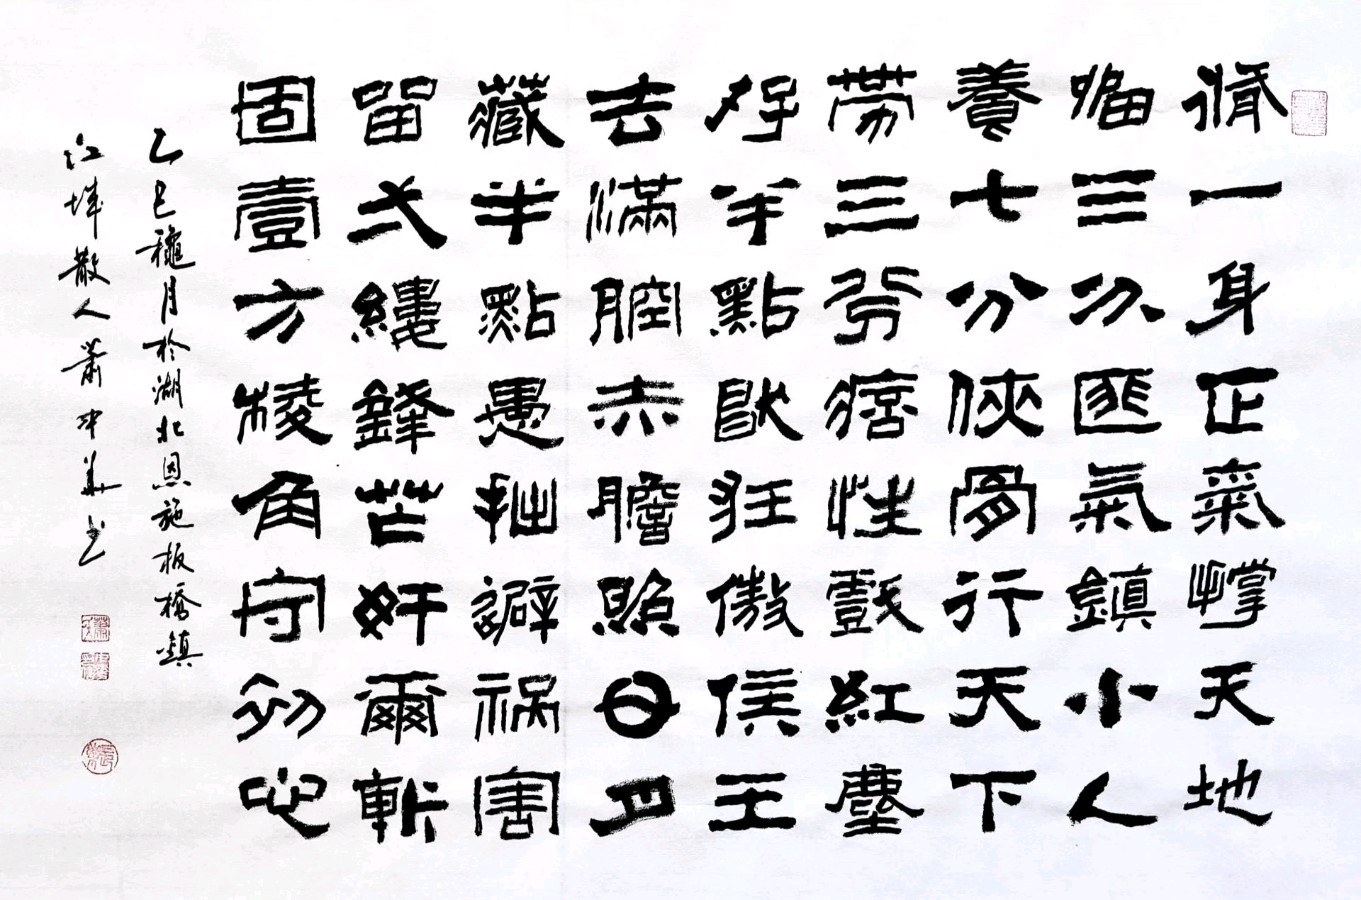 脩一身正氣撑天地
三分匪氣鎮小人
養七分俠骨行天下
帶三分痞性戲紅塵
存半點狂傲侯王
去滿腔赤膽照日月
藏半點愚拙避祸害
留弌縷鋒芒奸爾斬
固壹方棱角守初心
乙巳穐月於湖北恩施板橋鎮
江城散人蕭中华书